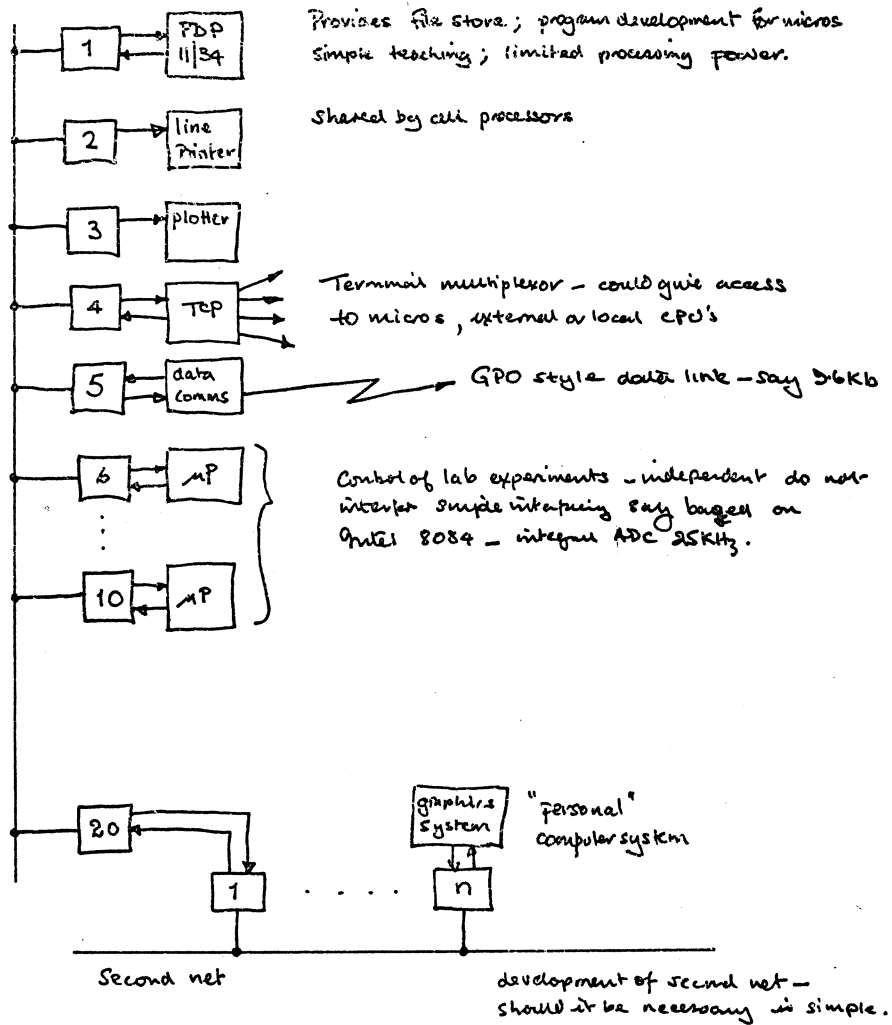 1
PDP
11/34
Provides file store; program development for micros
simple teaching; limited processing power.
2
line
Printer
shared by all processors
3
plotter
4
TCP
Terminal multiplexor – could give access
to micros, external or local CPU's
5
data
comms
GPO style data link – say 9.6Kb
6
μP
Control of lab experiments – independent do not
interfer simple interfacing say based on
Intel 8084 – integral ADC 25KHz.
10
μP
20
graphics
system
"personal"
computer system
1
. . . .
n
Second net
development of second net –
should it be necessary is simple.